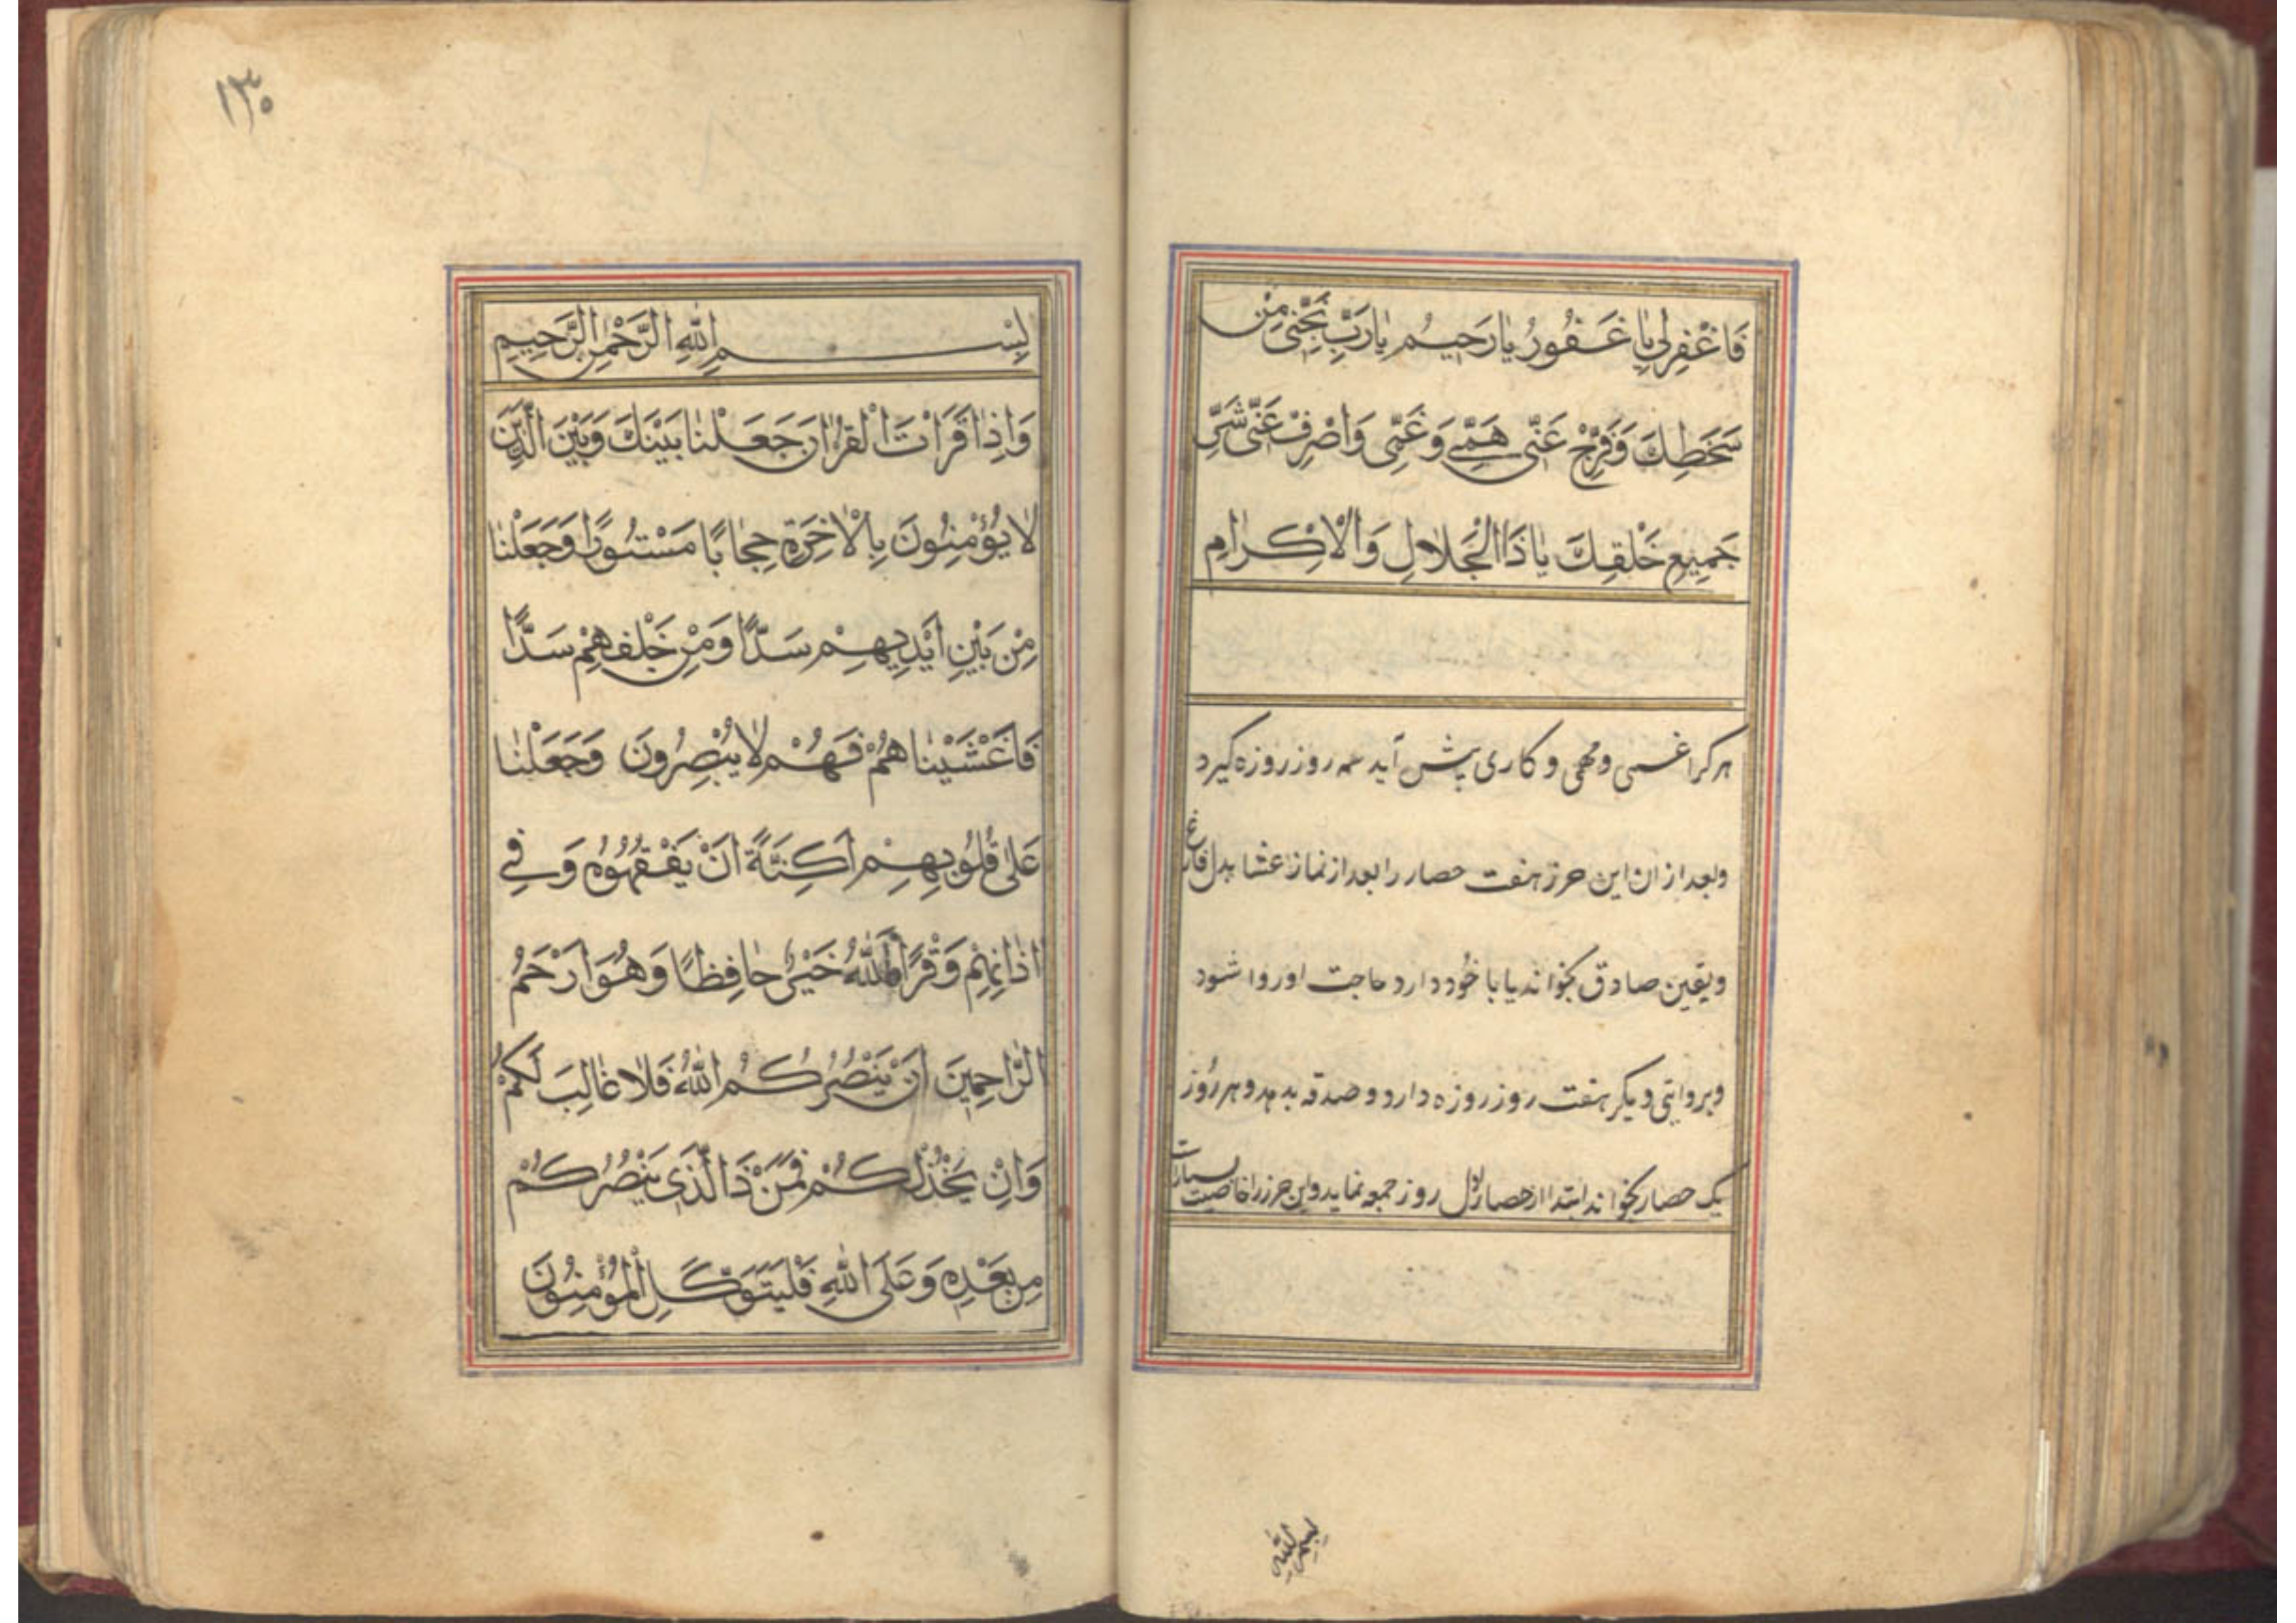 فَاغْفِرْلِي يَا غَفُورُ يَا رَحِيمُ يَا رَبِّ نَجِّنِي مِنْ
سَخَطِكَ وَفَرِّجْ عَنِّي هَمِّي وَغَمِّي وَاصْرِفْ عَنِّي شَرَّ
جَمِيعِ خَلْقِكَ يَا ذَا الْجَلَالِ وَالْاِكْرَامِ
هرکرا غمی و مهمی و کاری پیش آید سه روز روزه گیرد
وبعد از ان این حرز هفت حصار را بعد از نماز عشا بدل فارغ
ویقین صادق بخواند یا با خود دارد حاجت او روا شود
وبروایتی دیگر هفت روز روزه دارد و صدقه بدهد و هر روز
یک حصار بخواند ابتدا از حصار اول روز جمعه نماید و این حرز را خاصیت بسیار است
بسم الله
١٣٠
بِسْمِ اللهِ الرَّحْمٰنِ الرَّحِيمِ
وَاِذَا قَرَاْتَ الْقُرْاٰنَ جَعَلْنَا بَيْنَكَ وَبَيْنَ الَّذِينَ
لَا يُؤْمِنُونَ بِالْاٰخِرَةِ حِجَابًا مَسْتُورًا وَجَعَلْنَا
مِنْ بَيْنِ اَيْدِيهِمْ سَدًّا وَمِنْ خَلْفِهِمْ سَدًّا
فَاَغْشَيْنَا هُمْ فَهُمْ لَا يُبْصِرُونَ وَجَعَلْنَا
عَلٰى قُلُوبِهِمْ اَكِنَّةً اَنْ يَفْقَهُوهُ وَفِي
اٰذَانِهِمْ وَقْرًا فَاللهُ خَيْرٌ حَافِظًا وَهُوَ اَرْحَمُ
الرَّاحِمِينَ اِنْ يَنْصُرْكُمُ اللهُ فَلَا غَالِبَ لَكُمْ
وَاِنْ يَخْذُلْكُمْ فَمَنْ ذَا الَّذِي يَنْصُرُكُمْ
مِنْ بَعْدِهِ وَعَلَى اللهِ فَلْيَتَوَكَّلِ الْمُؤْمِنُونَ